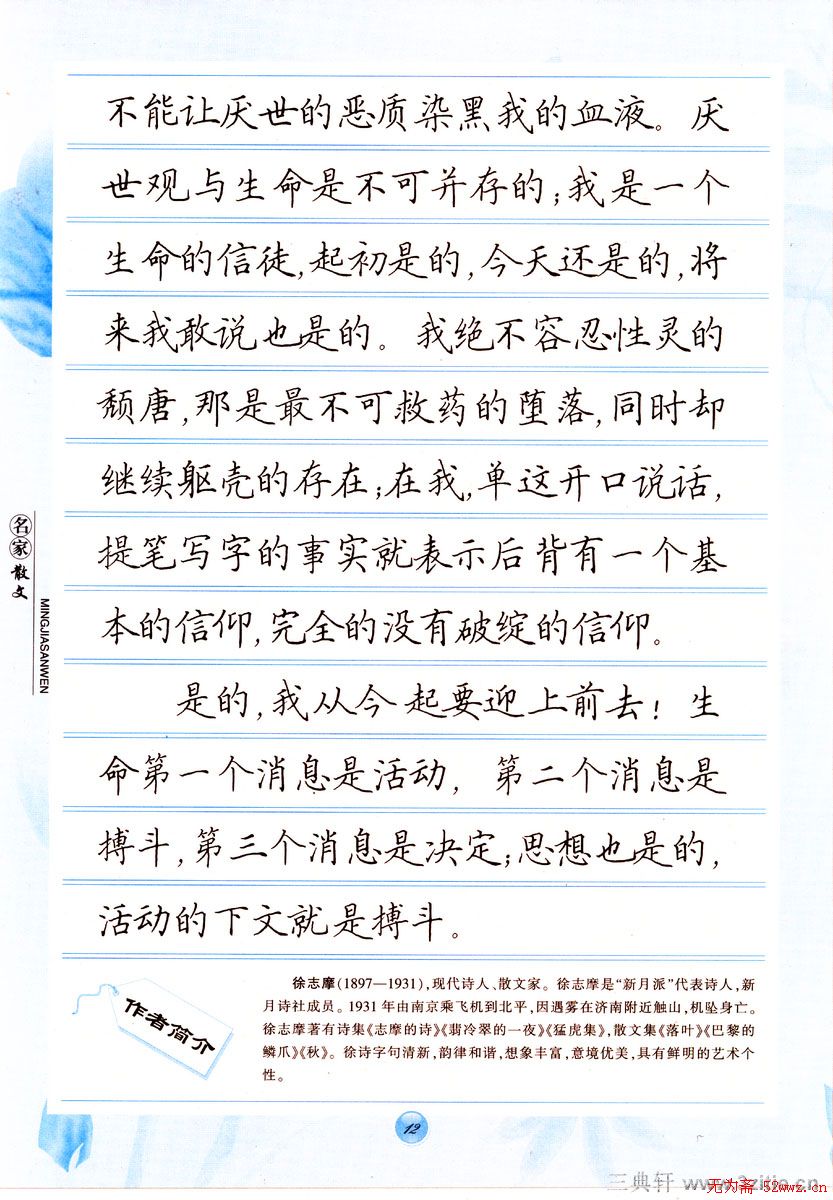 不能让厌世的恶质染黑我的血液。厌
世观与生命是不可并存的；我是一个
生命的信徒，起初是的，今天还是的，将
来我敢说也是的。我绝不容忍性灵的
颓唐，那是最不可救药的堕落，同时却
继续躯壳的存在；在我，单这开口说话，
提笔写字的事实就表示后背有一个基
本的信仰，完全的没有破绽的信仰。
是的，我从今起要迎上前去！生
命第一个消息是活动，第二个消息是
搏斗，第三个消息是决定；思想也是的，
活动的下文就是搏斗。
名家散文
MINGJIASANWEN
作者简介
徐志摩(1897—1931)，现代诗人、散文家。徐志摩是“新月派”代表诗人，新
月诗社成员。1931年由南京乘飞机到北平，因遇雾在济南附近触山，机坠身亡。
徐志摩著有诗集《志摩的诗》《翡冷翠的一夜》《猛虎集》，散文集《落叶》《巴黎的
鳞爪》《秋》。徐诗字句清新，韵律和谐，想象丰富，意境优美，具有鲜明的艺术个
性。
12
三典轩
无为斋 52wwz.cn